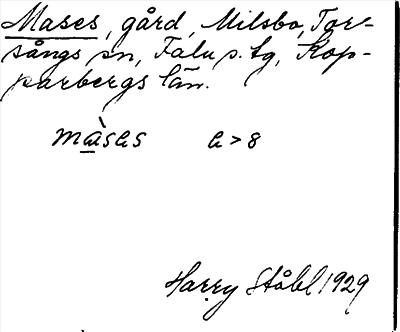 Mases, gård, Milsbo, Tor-
sångs sn, Falu s. tg, Kop-
parbergs län.
màsas a > 8
Harry Ståhl 1929